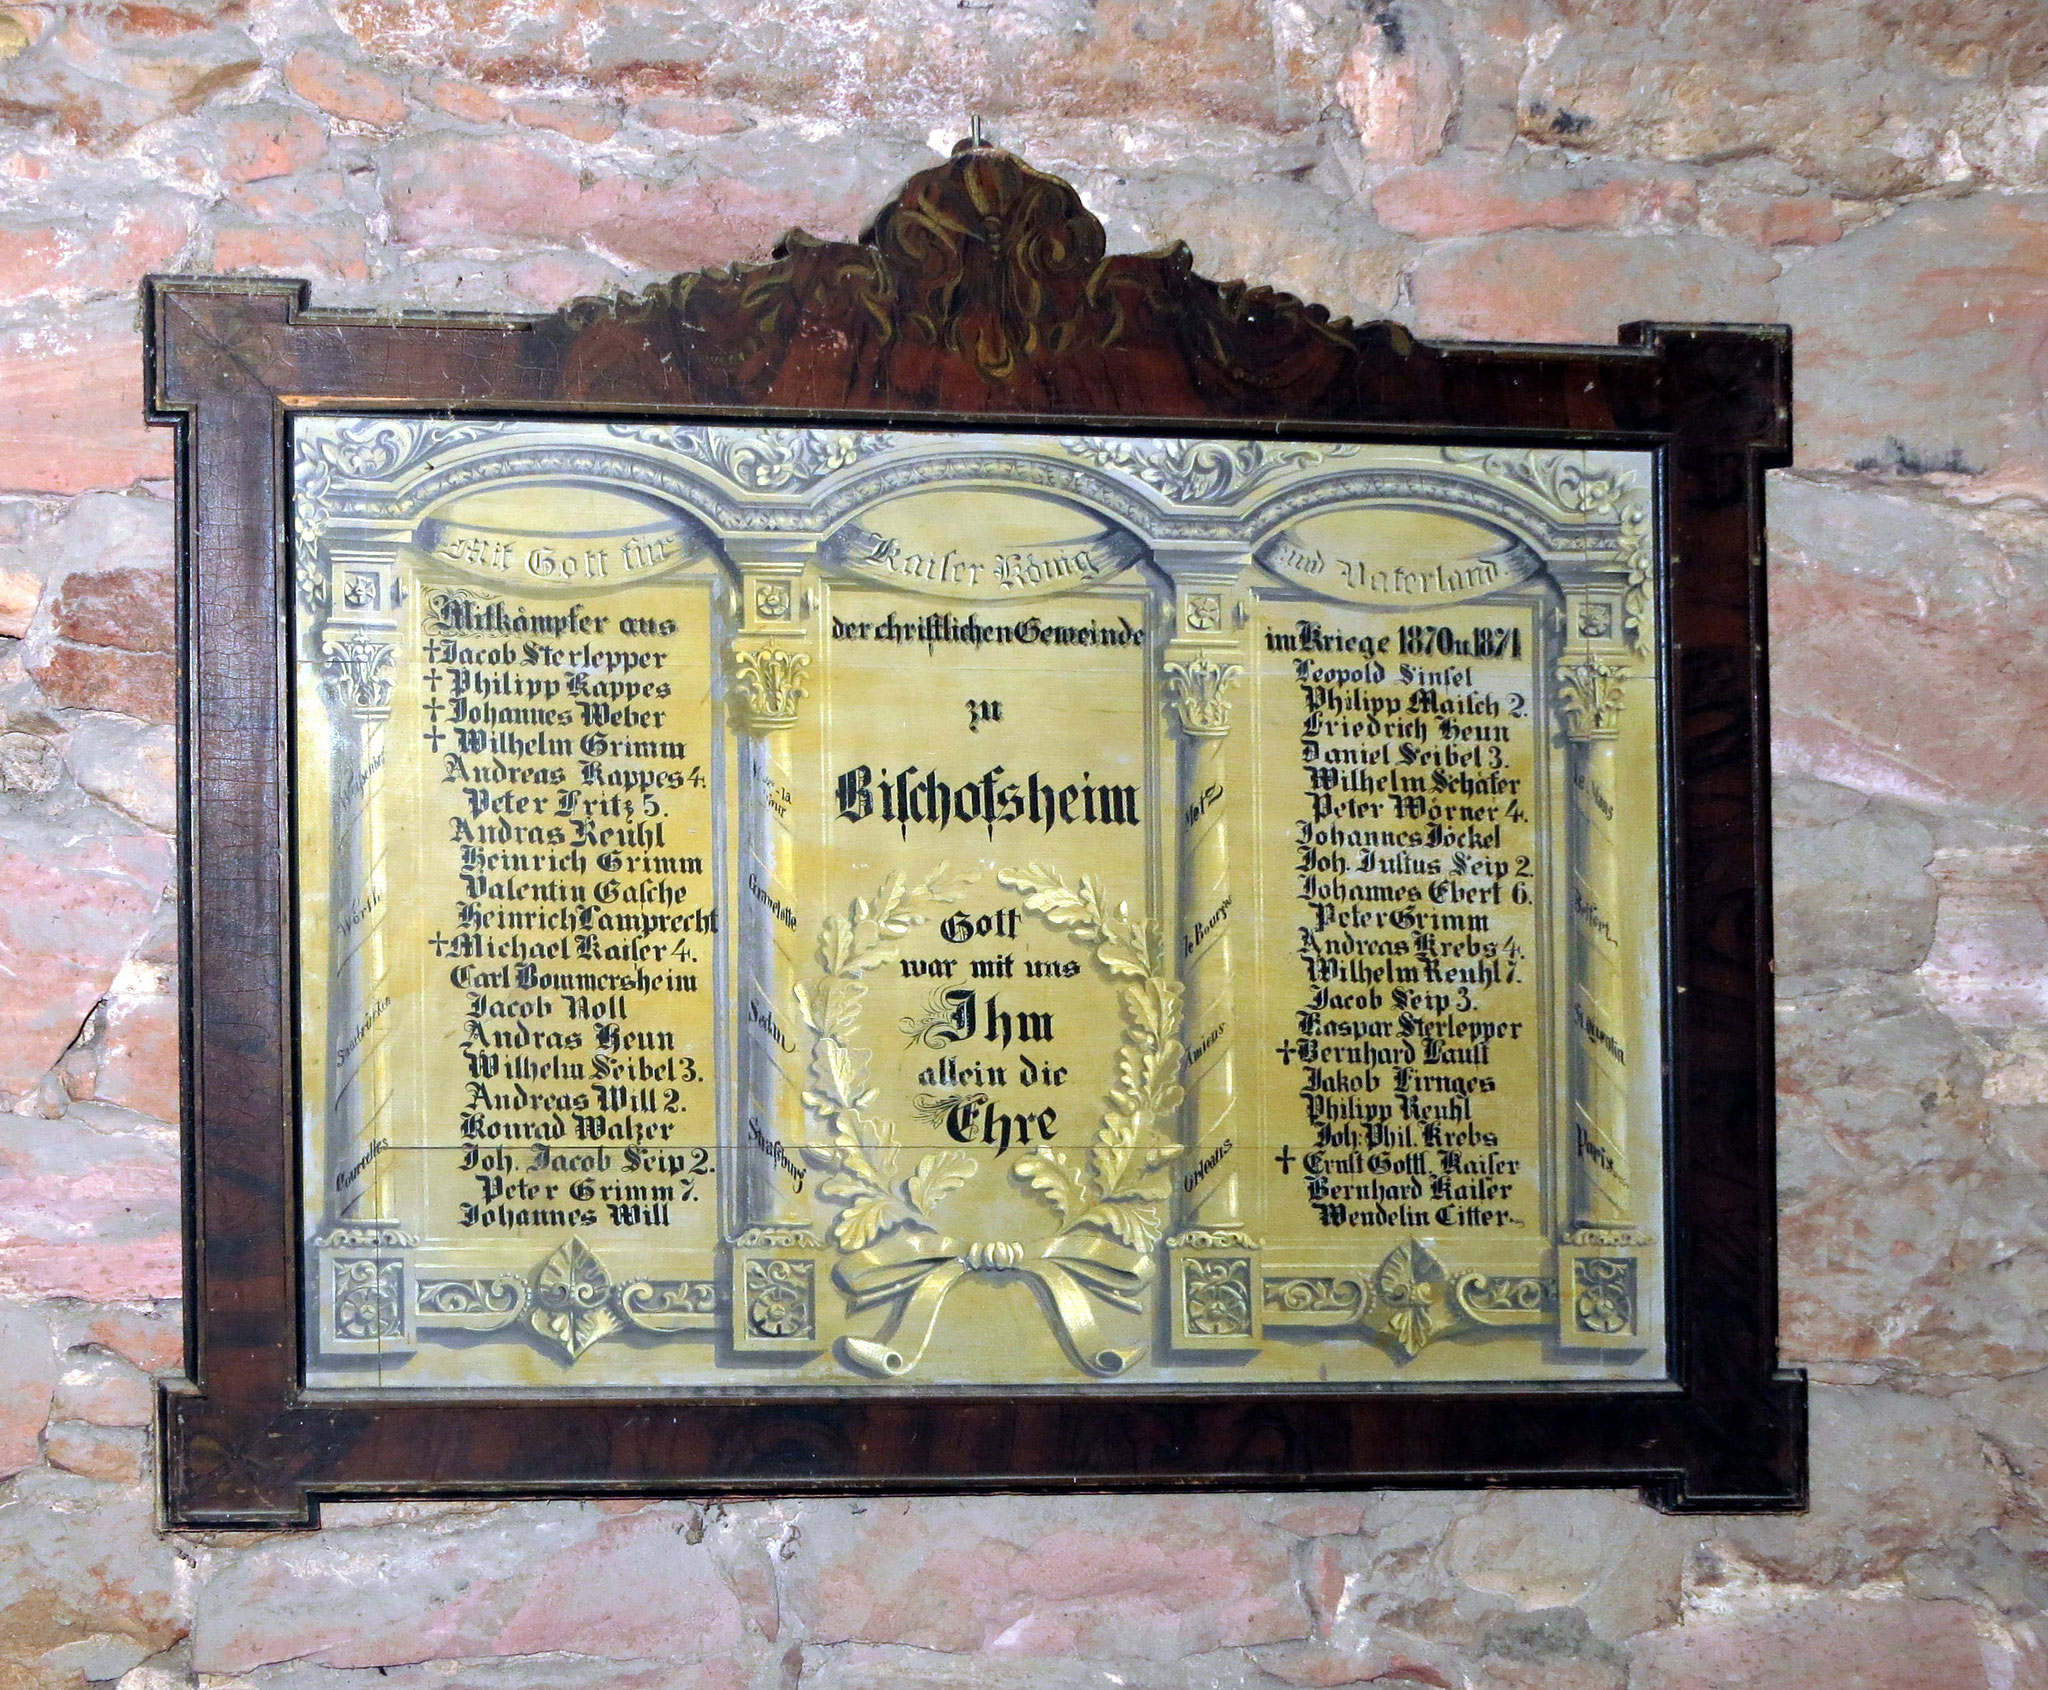 Mit Gott für
Kaiser König
und Vaterland.
Mitkämpfer aus
† Jacob Sterlepper
† Philipp Kappes
† Johannes Weber
† Wilhelm Grimm
Andreas Kappes 4.
Peter Fritz 5.
Andras Reuhl
Heinrich Grimm
Valentin Gasche
Heinrich Lamprecht
† Michael Kaiser 4.
Carl Bommersheim
Jacob Noll
Andras Heun
Wilhelm Seibel 3.
Andreas Will 2.
Konrad Walzer
Joh. Jacob Seip 2.
Peter Grimm 7.
Johannes Will
der christlichen Gemeinde
zu
Bischofsheim
Gott
war mit uns
Ihm
allein die
Ehre
im Kriege 1870 u 1871
Leopold Sinsel
Philipp Maisch 2.
Friedrich Heun
Daniel Seibel 3.
Wilhelm Schäfer
Peter Wörner 4.
Johannes Jöckel
Joh. Justus Seip 2.
Johannes Ebert 6.
Peter Grimm
Andreas Krebs 4.
Wilhelm Reuhl 7.
Jacob Seip 3.
Kaspar Sterlepper
† Bernhard Faust
Jakob Firnges
Philipp Reuhl
Joh: Phil. Krebs
† Ernst Gottl. Kaiser
Bernhard Kaiser
Wendelin Citter
Wörth
Saarbrücken
Courcelles
Mars-la
Tour
Gravelotte
Sedan
Straßburg
Metz
le Bourge
Amiens
Orleans
le Mans
Belfort
St. Quentin
Paris